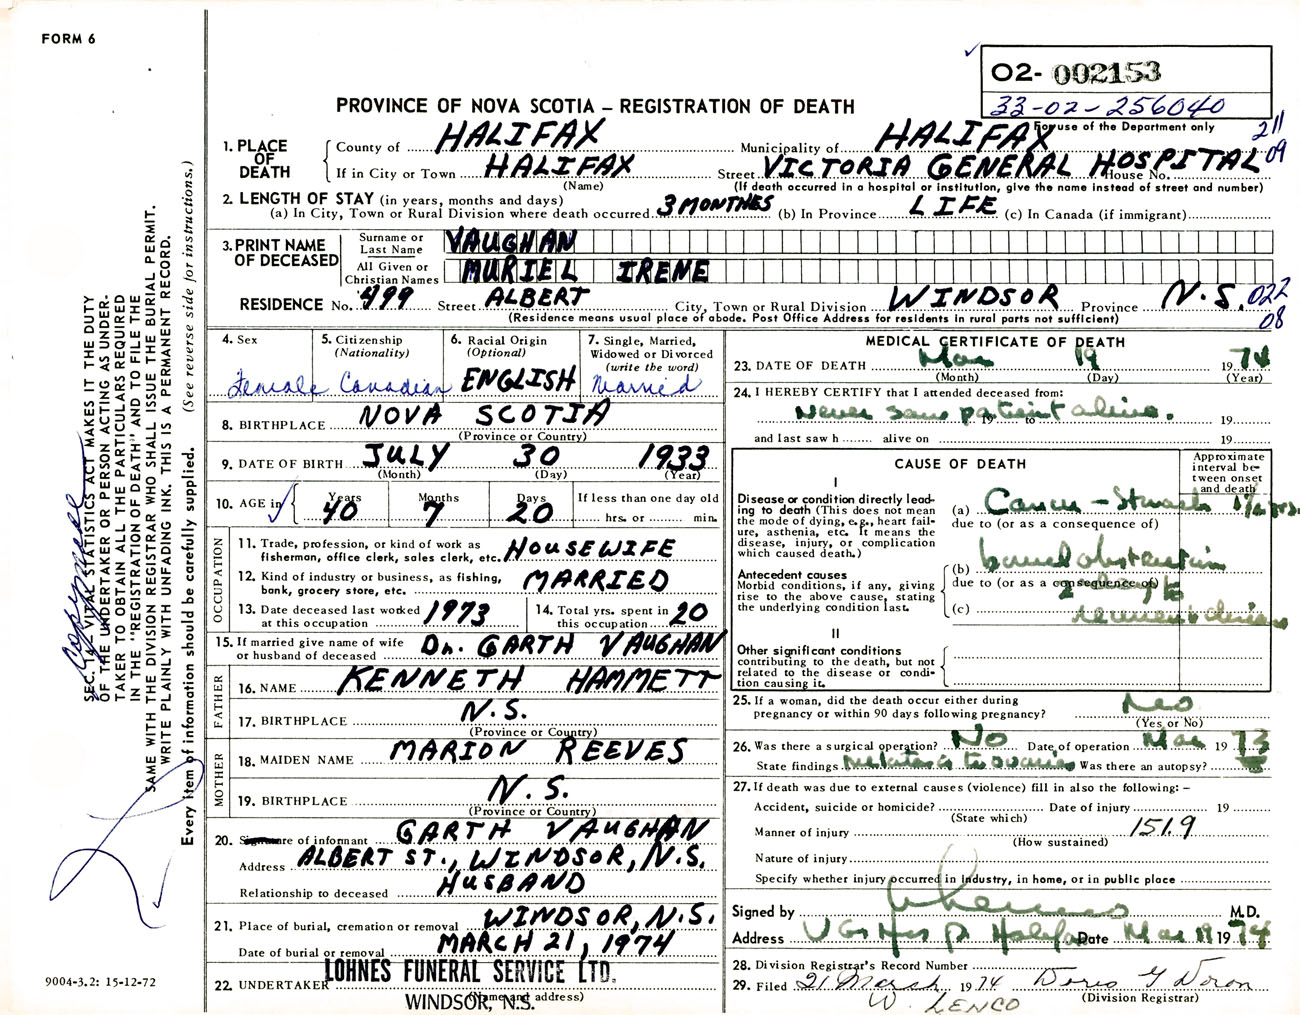 FORM 6
O2- 002153
33-02-256040
For use of the Department only
211
09
PROVINCE OF NOVA SCOTIA – REGISTRATION OF DEATH
1. PLACE OF DEATH
County of HALIFAX Municipality of HALIFAX
If in City or Town HALIFAX Street VICTORIA GENERAL HOSPITAL House No.
(Name) (If death occurred in a hospital or institution, give the name instead of street and number)
2. LENGTH OF STAY (in years, months and days)
(a) In City, Town or Rural Division where death occurred 3 MONTHES (b) In Province LIFE (c) In Canada (if immigrant)
3. PRINT NAME OF DECEASED
Surname or Last Name VAUGHAN
All Given or Christian Names MURIEL IRENE
RESIDENCE No. 499 Street ALBERT City, Town or Rural Division WINDSOR Province N.S. 022
08
(Residence means usual place of abode. Post Office Address for residents in rural parts not sufficient)
4. Sex Female
5. Citizenship (Nationality) Canadian
6. Racial Origin (Optional) ENGLISH
7. Single, Married, Widowed or Divorced (write the word) Married
8. BIRTHPLACE NOVA SCOTIA
(Province or Country)
9. DATE OF BIRTH JULY 30 1933
(Month) (Day) (Year)
10. AGE in Years 40 Months 7 Days 20 If less than one day old hrs. or min.
OCCUPATION
11. Trade, profession, or kind of work as fisherman, office clerk, sales clerk, etc. HOUSEWIFE
12. Kind of industry or business, as fishing, bank, grocery store, etc. MARRIED
13. Date deceased last worked at this occupation 1973
14. Total yrs. spent in this occupation 20
15. If married give name of wife or husband of deceased Dr. GARTH VAUGHAN
FATHER
16. NAME KENNETH HAMMETT
17. BIRTHPLACE N.S.
(Province or Country)
MOTHER
18. MAIDEN NAME MARION REEVES
19. BIRTHPLACE N.S.
(Province or Country)
20. Signature of informant GARTH VAUGHAN
Address ALBERT ST., WINDSOR, N.S.
Relationship to deceased HUSBAND
21. Place of burial, cremation or removal WINDSOR, N.S.
Date of burial or removal MARCH 21, 1974
22. UNDERTAKER LOHNES FUNERAL SERVICE LTD.
WINDSOR, N.S.
(Name and address)
MEDICAL CERTIFICATE OF DEATH
23. DATE OF DEATH Mar 19 1974
(Month) (Day) (Year)
24. I HEREBY CERTIFY that I attended deceased from:
Never saw patient alive. 19 to 19
and last saw h alive on 19
CAUSE OF DEATH
Approximate interval between onset and death
I
Disease or condition directly leading to death (This does not mean the mode of dying, e.g., heart failure, asthenia, etc. It means the disease, injury, or complication which caused death.)
(a) Cancer – Stomach 1½ yrs.
due to (or as a consequence of)
Antecedent causes
Morbid conditions, if any, giving rise to the above cause, stating the underlying condition last.
(b) bowel obstruction
due to (or as a consequence of)
(c)
II
Other significant conditions contributing to the death, but not related to the disease or condition causing it.
25. If a woman, did the death occur either during pregnancy or within 90 days following pregnancy? No
(Yes or No)
26. Was there a surgical operation? No Date of operation Mar 1973
State findings Metastasis to ovaries Was there an autopsy?
27. If death was due to external causes (violence) fill in also the following: –
Accident, suicide or homicide? Date of injury 19
(State which)
Manner of injury 151.9
(How sustained)
Nature of injury
Specify whether injury occurred in industry, in home, or in public place
Signed by M.D.
Address V G Hosp Halifax Date Mar 19 1974
28. Division Registrar's Record Number
29. Filed 21 March 1974 Doris Y Doron
(Division Registrar)
W. LENCO
SEC. 14 – VITAL STATISTICS ACT MAKES IT THE DUTY
OF THE UNDERTAKER OR PERSON ACTING AS UNDER-
TAKER TO OBTAIN ALL THE PARTICULARS REQUIRED
IN THE "REGISTRATION OF DEATH" AND TO FILE THE
SAME WITH THE DIVISION REGISTRAR WHO SHALL ISSUE THE BURIAL PERMIT.
WRITE PLAINLY WITH UNFADING INK. THIS IS A PERMANENT RECORD.
Every item of information should be carefully supplied. (See reverse side for instructions.)
9004-3.2: 15-12-72